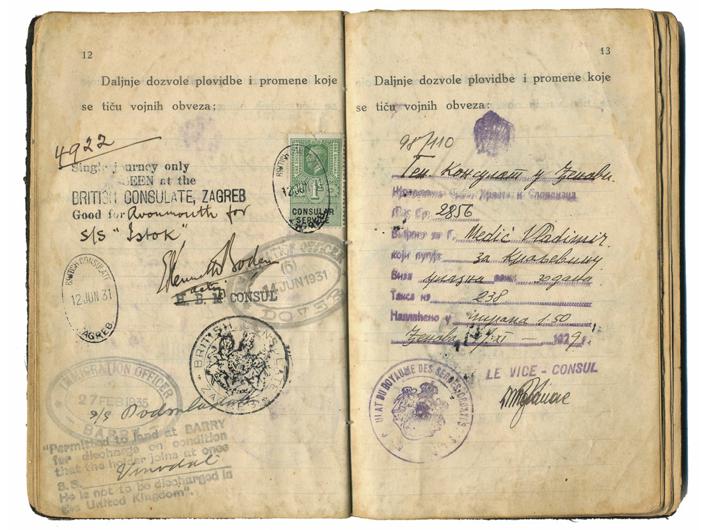 12
Daljnje dozvole plovidbe i promene koje
se tiču vojnih obveza:
4922
Single journey only
SEEN at the
BRITISH CONSULATE, ZAGREB
Good for Avonmouth for
S/S "Istok"
CONSULAR
SERVICE
BRITISH CONSULATE
12 JUN 31
ZAGREB
H. B. M. CONSUL
IMMIGRATION OFFICER
(6)
14 JUN 1931
DOVER
BRITISH CONSULATE
12 JUN 31
ZAGREB
BRITISH CONSULATE
IMMIGRATION OFFICER
27 FEB 1935
BARRY
S/S
"Permitted to land at BARRY
for discharge on condition
that the holder joins at once
S.S. Vinodal
He is not to be discharged in
the United Kingdom".
13
Daljnje dozvole plovidbe i promene koje
se tiču vojnih obveza:
98/110
Ген. Консулат у Ђенови
Бр. 2856
Medić Vladimir
који путује за Краљевину
Виза улазна
Такса из 238
Наплаћено у 1.50
Ђенова XI 1929
LE VICE - CONSUL
DU ROYAUME DES SERBES, CROATES